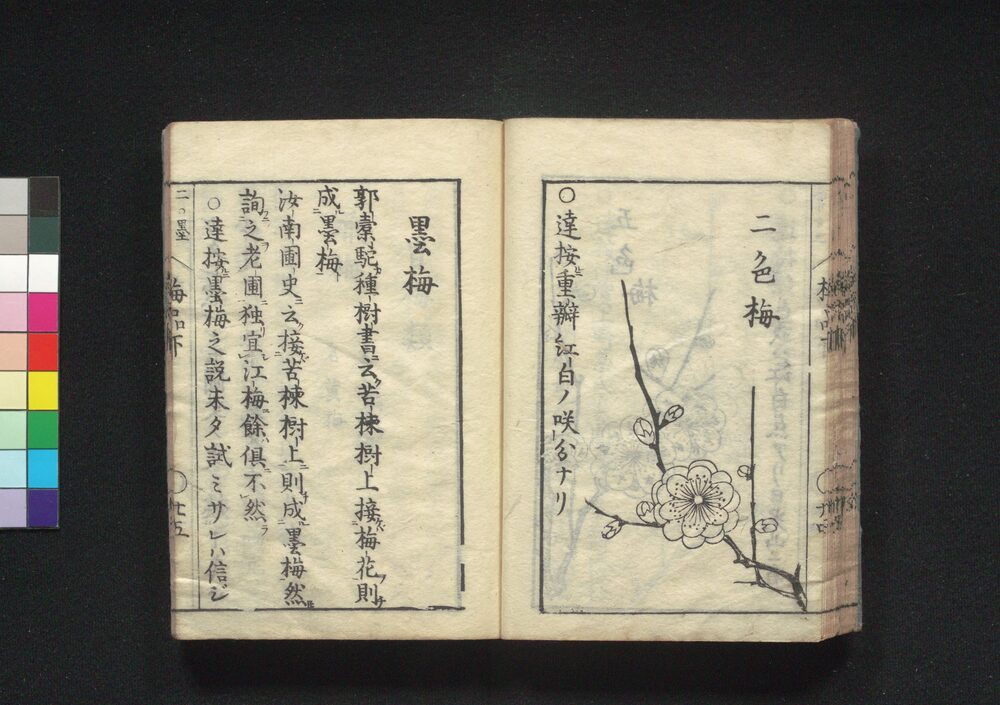 二色梅
○達按重瓣紅白ノ咲分ナリ
墨梅
郭橐駝種樹書云苦楝樹上接梅花則
成墨梅
汝南圃史云接苦楝樹上則成墨梅然
詢之老圃独宜江梅餘倶不然
○達按墨梅之説未タ試ミサレハ信シ
二の墨
梅品下
○廿五